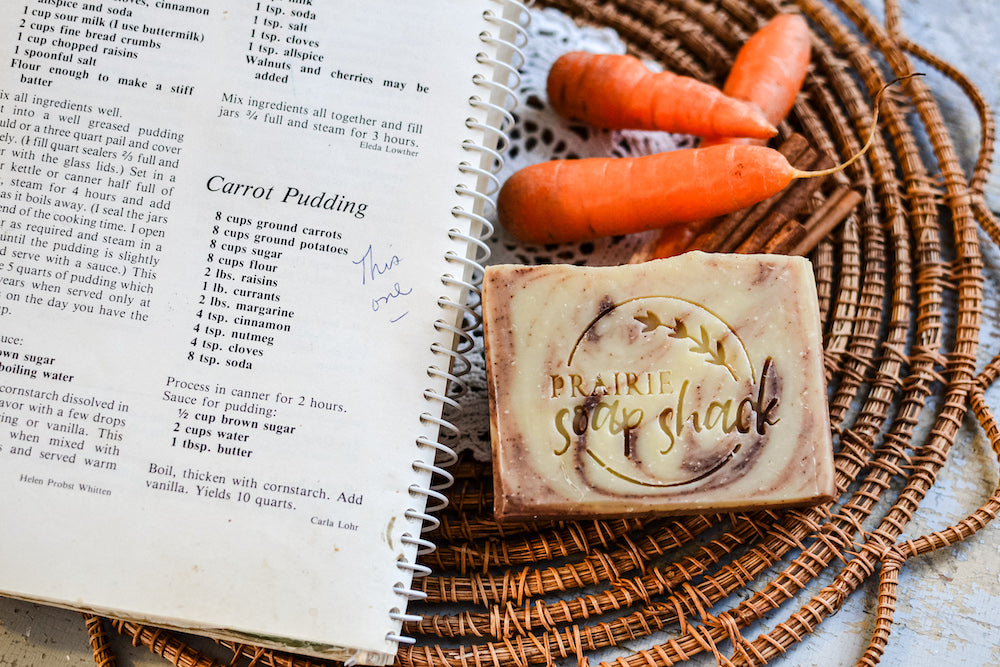 allspice and cloves, cinnamon
1 cup sour milk (I use buttermilk)
2 cups fine bread crumbs
1 cup chopped raisins
1 spoonful salt
Flour enough to make a stiff
batter
all ingredients well.
into a well greased pudding
or a three quart pail and cover
(I fill quart sealers ⅔ full and
with the glass lids.) Set in a
kettle or canner half full of
steam for 4 hours and add
as it boils away. (I seal the jars
end of the cooking time. I open
as required and steam in a
until the pudding is slightly
serve with a sauce.) This
5 quarts of pudding which
years when served only at
on the day you have the
brown sugar
boiling water
cornstarch dissolved in
with a few drops
or vanilla. This
when mixed with
and served warm
Helen Probst Whitten
1 tsp. soda
1 tsp. salt
1 tsp. cloves
1 tsp. allspice
Walnuts and cherries may be
added
Mix ingredients all together and fill
jars ¾ full and steam for 3 hours.
Eleda Lowther
Carrot Pudding
8 cups ground carrots
8 cups ground potatoes
8 cups sugar
8 cups flour
2 lbs. raisins
1 lb. currants
2 lbs. margarine
4 tsp. cinnamon
4 tsp. nutmeg
4 tsp. cloves
8 tsp. soda
This
one
Process in canner for 2 hours.
Sauce for pudding:
½ cup brown sugar
2 cups water
1 tbsp. butter
Boil, thicken with cornstarch. Add
vanilla. Yields 10 quarts.
Carla Lohr
PRAIRIE
soap shack